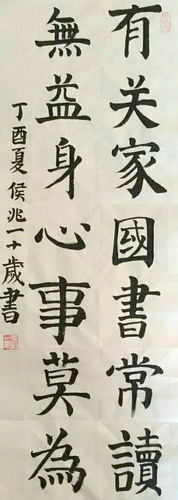 有关家國書常讀
無益身心事莫為
丁酉夏侯兆一十歲書